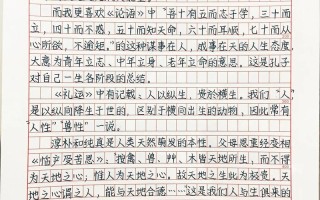 而我更喜欢《论语》中“吾十有五而志于学,三十而
立,四十而不惑,五十而知天命,六十而耳顺,七十而从
心所欲,不逾矩。”的这种谋事在人,成事在天的人生态度。
大意为青年立志、中年立身、老年立命的意思。这是孔子
对自己一生各阶段的总结。
《礼运》中有记载、人以纵生,贵於横生。我们“人”
是以纵向降生于世的,区别于横向出生的动物,因此常有
“人性”“兽性”一说。
淳朴和纯真是人类天然萌发的本性。父母恩重经变相
《怡户受苦思》:“擒禽、兽、艸、木皆天地所生,而不得
为天地之心;惟人为天地之心。故天地之生此为极贵。天
地之心谓之人,能与天地合德……”这是我们人与生俱来的